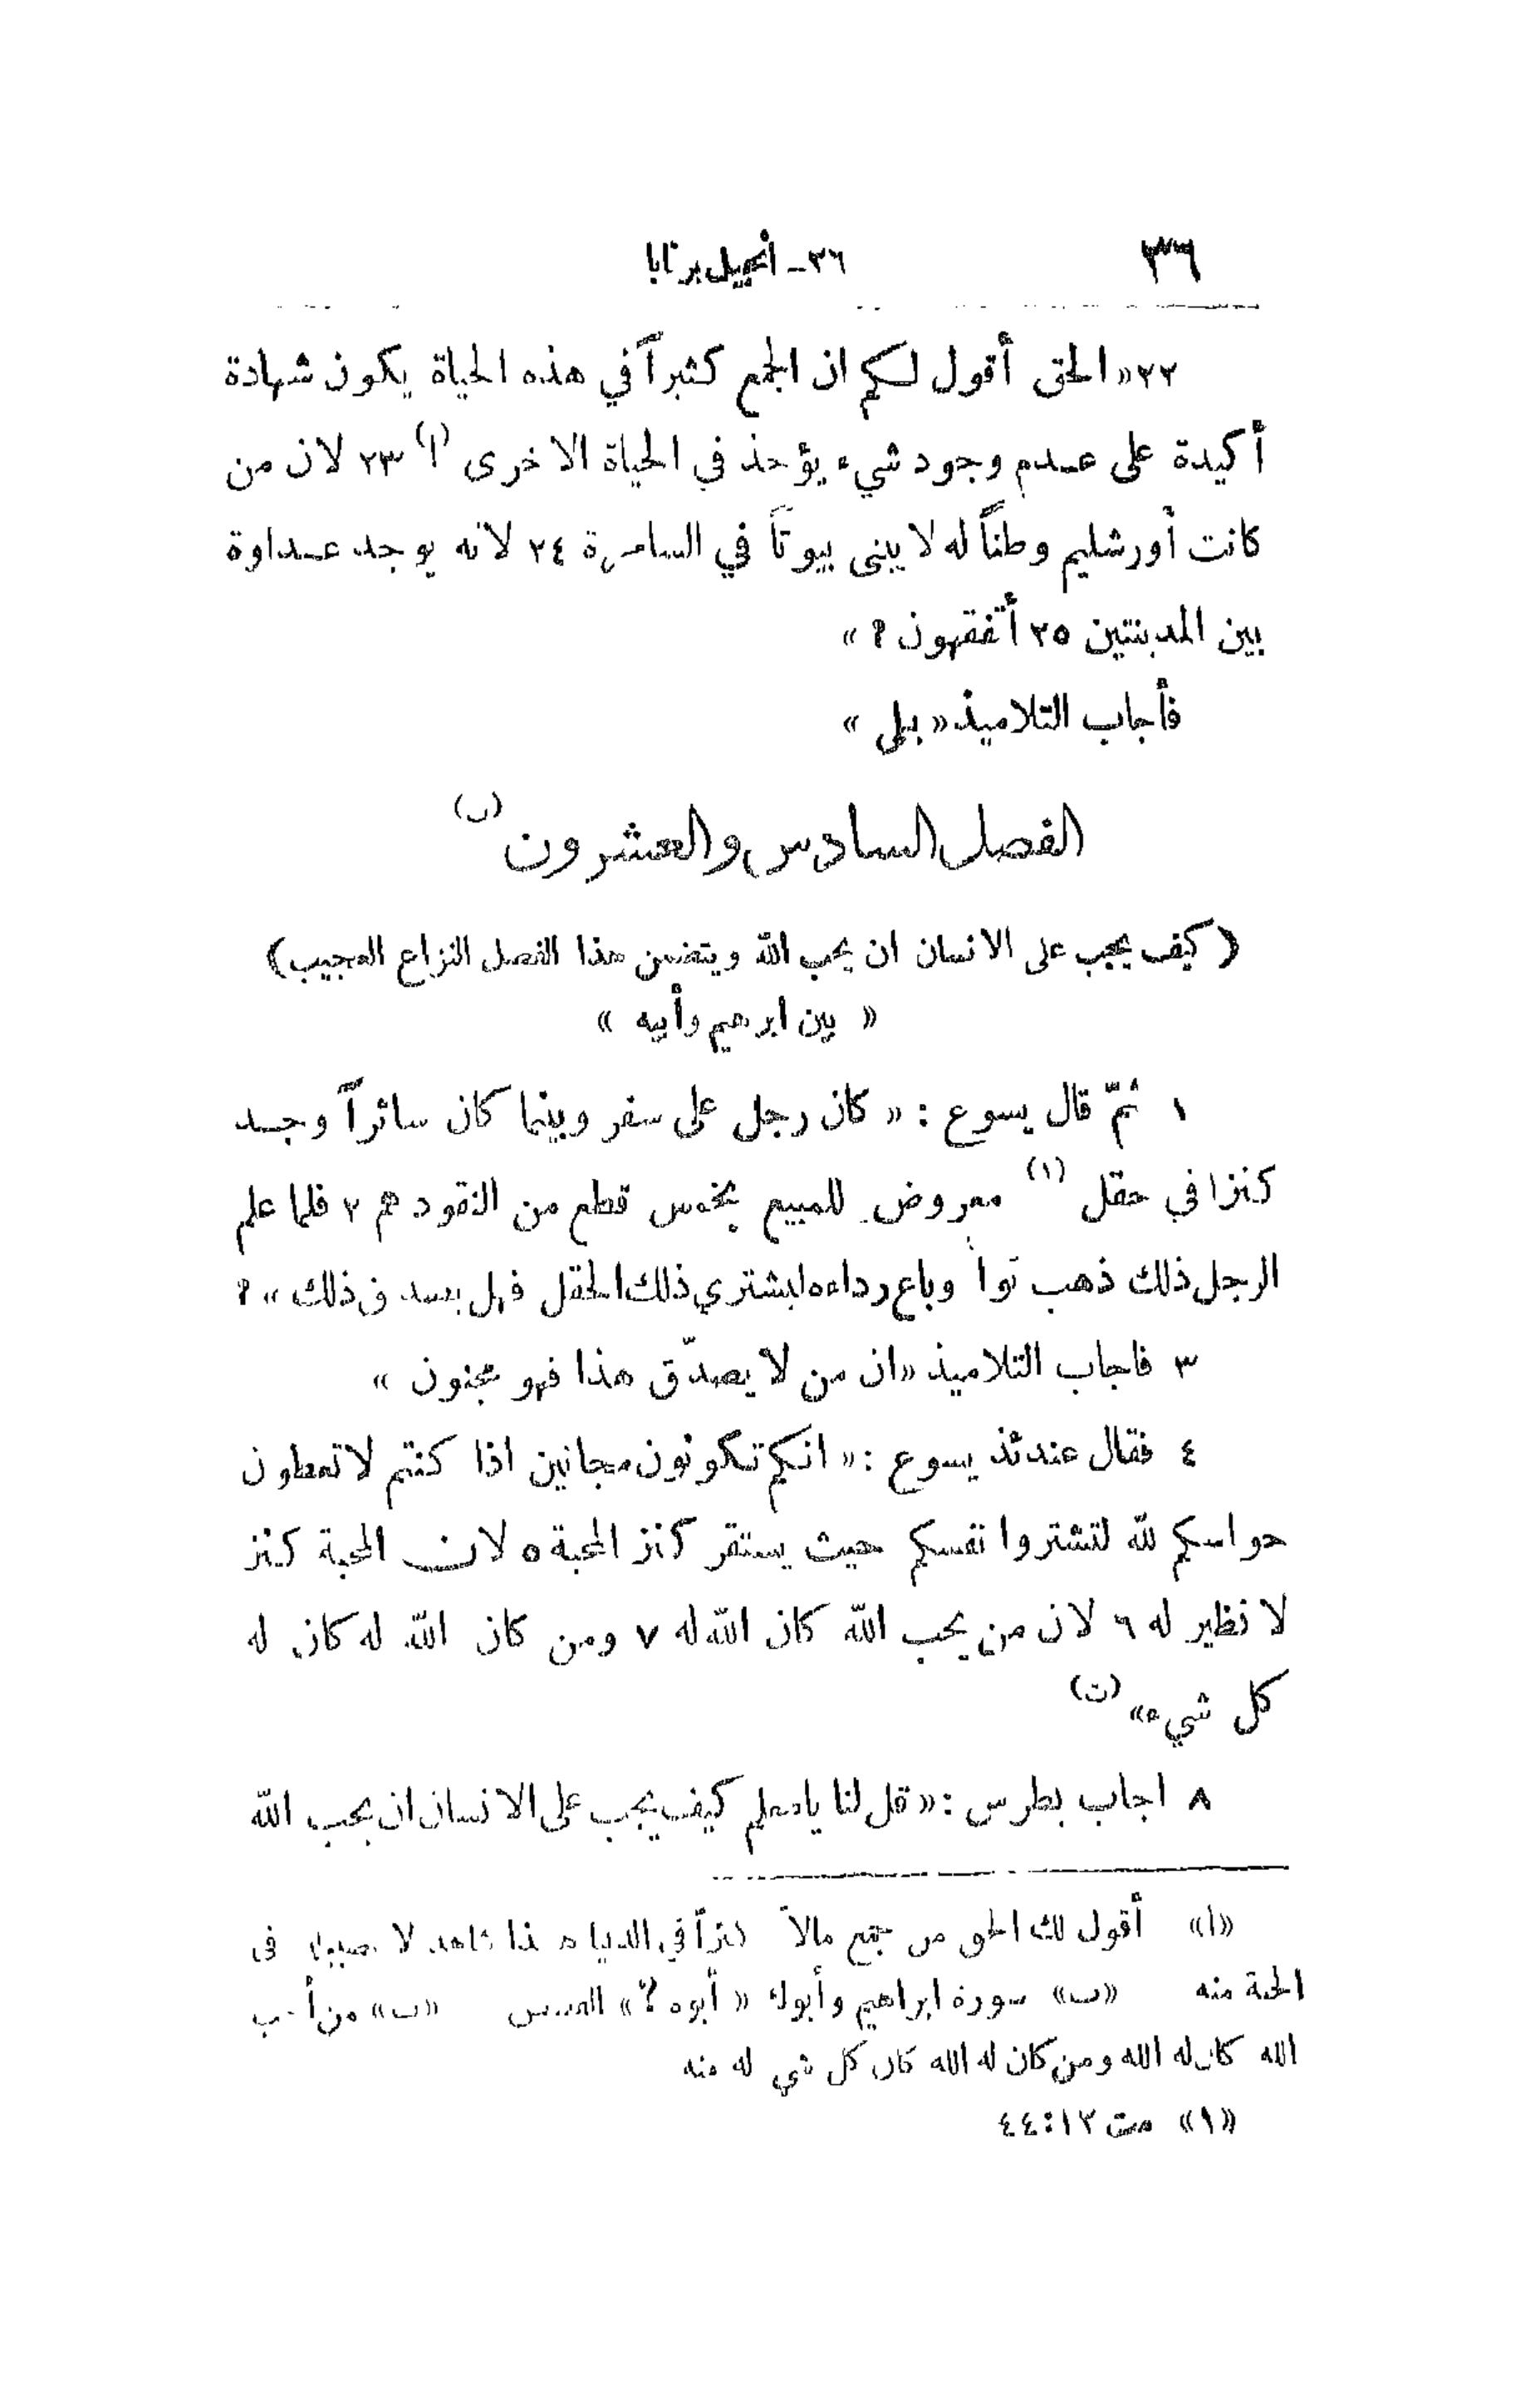 ٣٦
٣٦- أنجيل برنابا
٢٢ «الحق أقول لكم ان الجمع كثيراً في هذه الحياة يكون شهادة
أكيدة على عدم وجود شيء يؤخذ في الحياة الاخرى (ا) ٢٣ لان من
كانت أورشليم وطناً له لا يبني بيوتاً في السامرة ٢٤ لانه يوجد عداوة
بين المدينتين ٢٥ أتفقهون ؟ »
فأجاب التلاميذ « بلى »
الفصل السادس والعشرون (ب)
( كيف يجب على الانسان ان يحب الله ويتضمن هذا الفصل النزاع العجيب)
« بين ابرهيم وأبيه »
١ ثمّ قال يسوع : « كان رجل على سفر وبينما كان سائراً وجد
كنزا في حقل (١) معروض للمبيع بخمس قطع من النقود هم ٢ فلما علم
الرجل ذلك ذهب تواً وباع رداءه ليشتري ذلك الحقل فهل يصدق ذلك » ؟
٣ فاجاب التلاميذ «ان من لا يصدّق هذا فهو مجنون »
٤ فقال عندئذ يسوع : « انكم تكونون مجانين اذا كنتم لا تعطون
حواسكم لله لتشتروا نفسكم حيث يستقر كنز المحبة ٥ لان المحبة كنز
لا نظير له ٦ لان من يحب الله كان الله له ٧ ومن كان الله له كان له
كل شيء» (ت)
٨ اجاب بطرس : « قل لنا يا معلم كيف يجب على الانسان ان يحب الله
«ا» أقول لك الحق من جمع مالاً في الدنيا لا في
الجنة منه «ب» سورة ابراهيم وأبوك « أبوه ؟ » «ت» من أحب
الله كان له الله ومن كان له الله كان كل شي له منه
«١» مت ١٣:٤٤